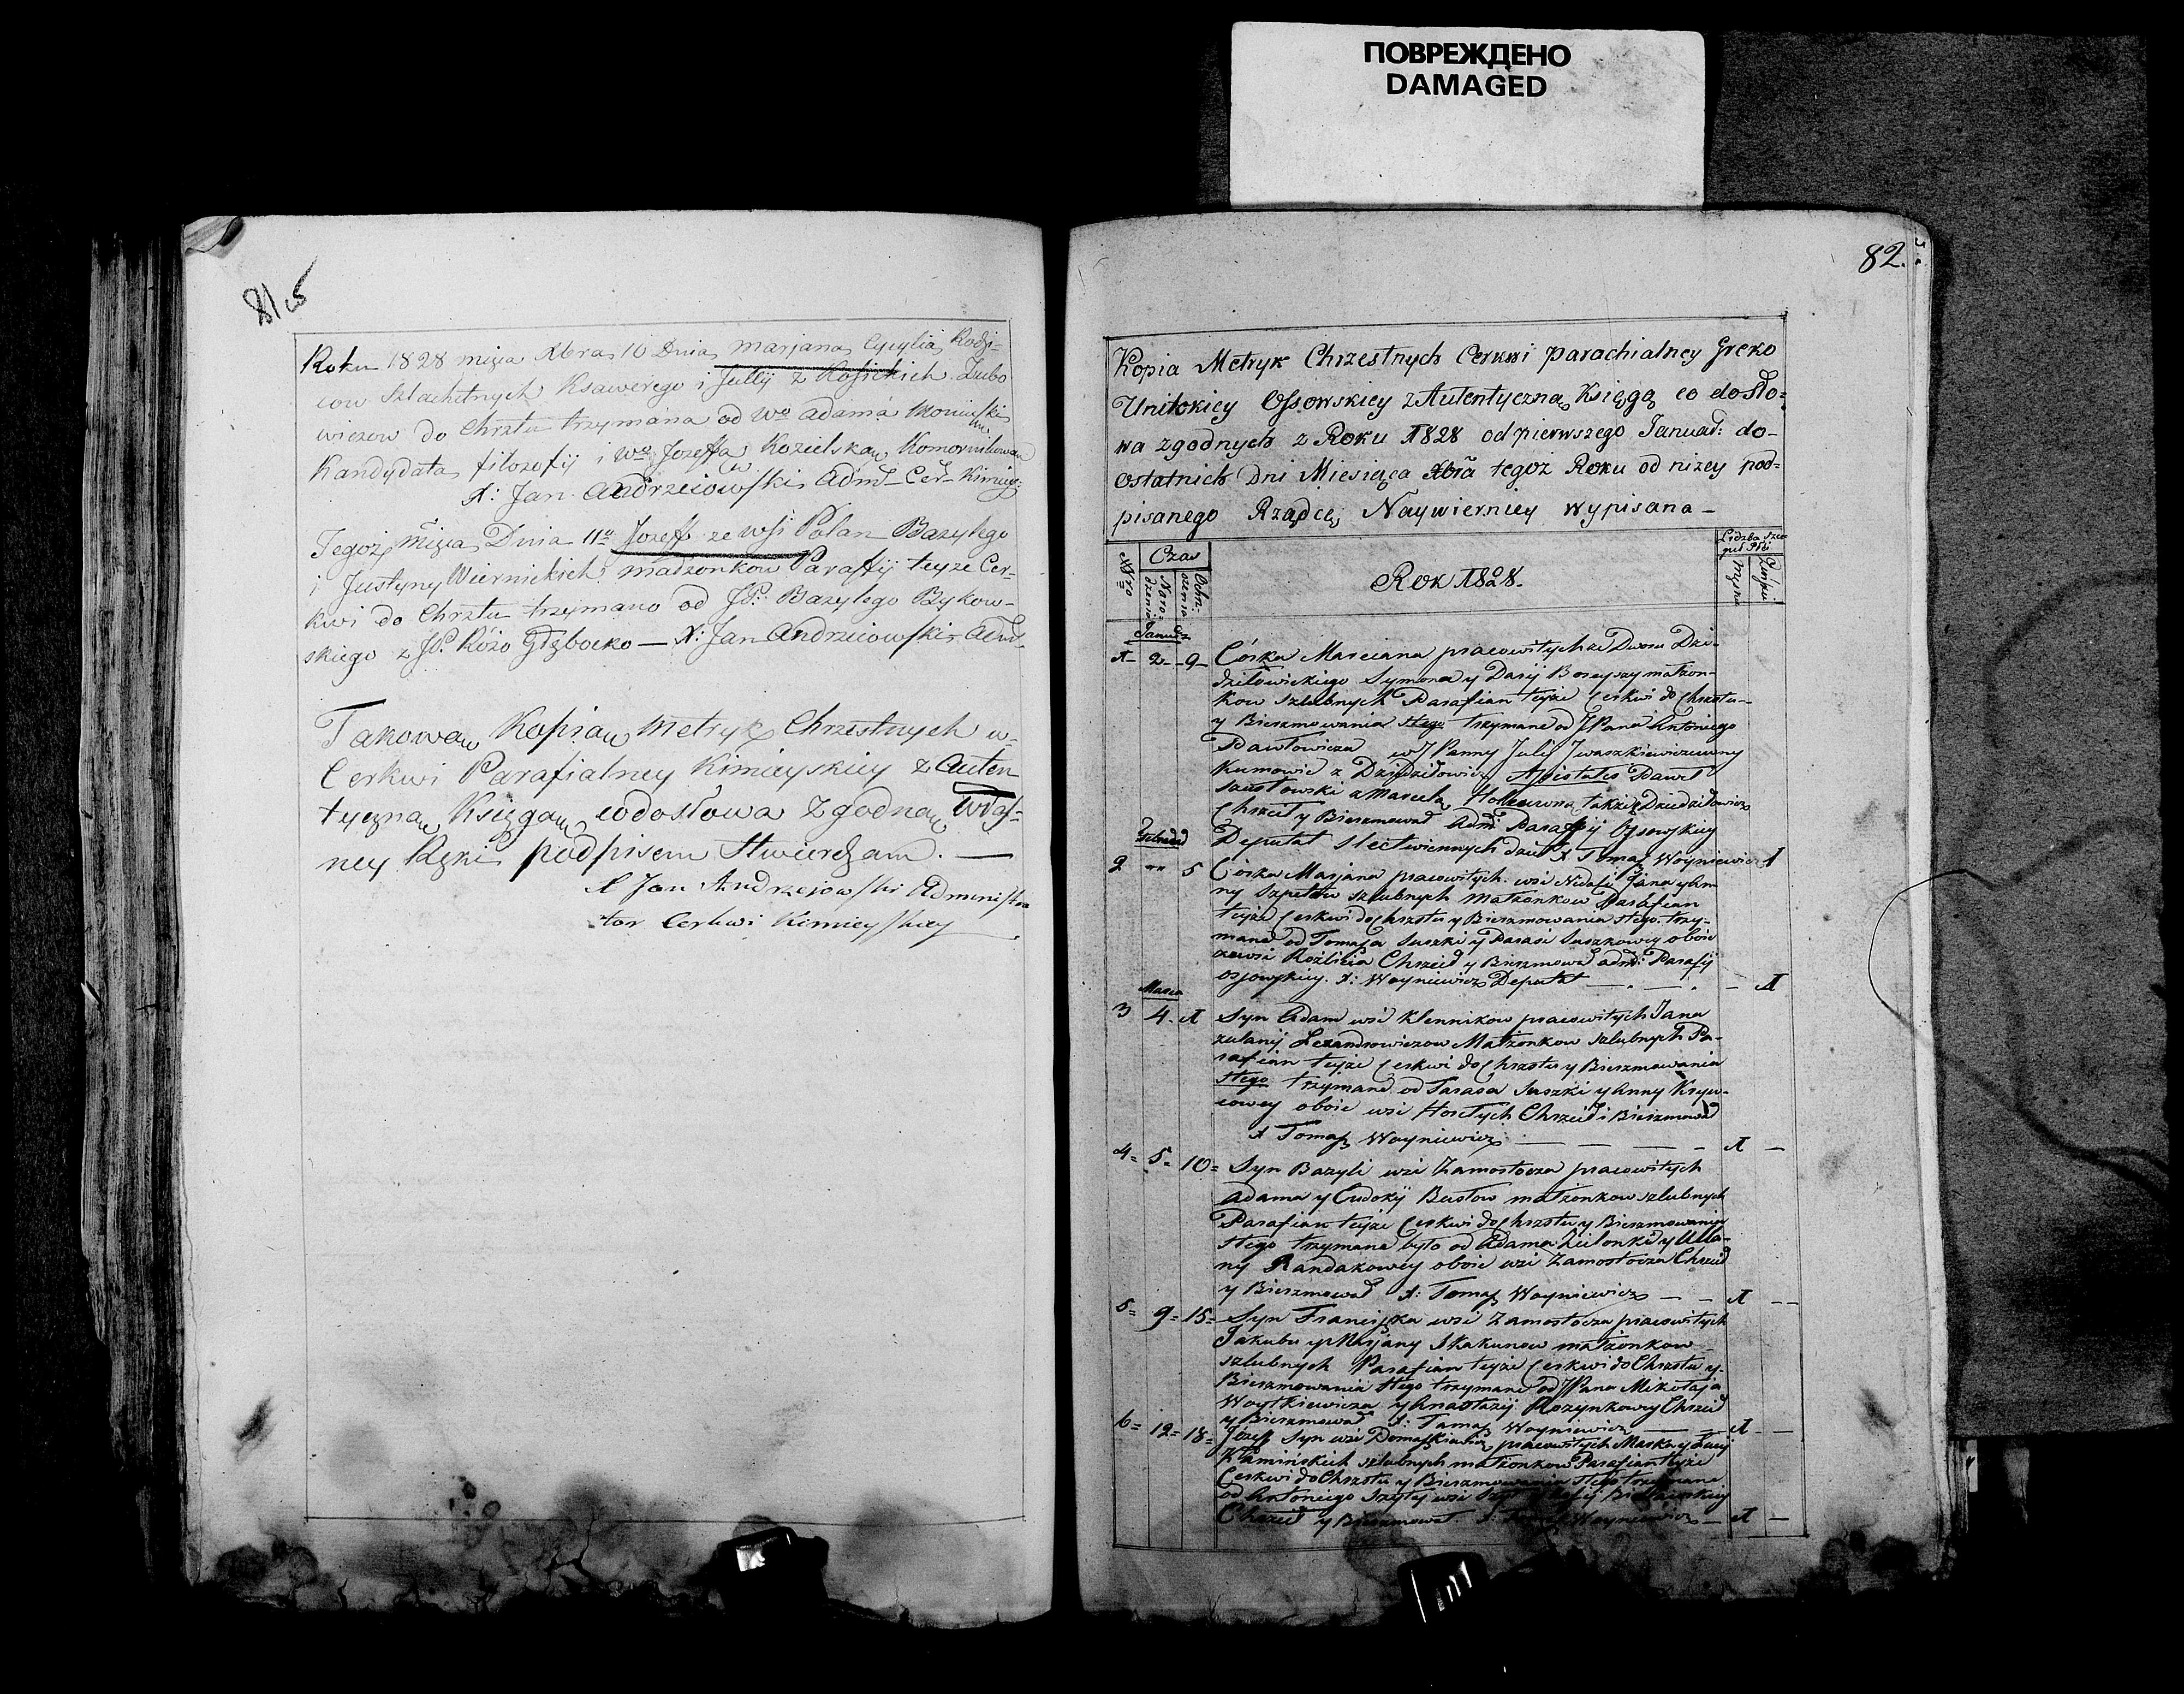 ПОВРЕЖДЕНО
DAMAGED
81 об
Roku 1828 mięca Xbra 10 Dnia Marjana Cycylia Rodzi-
cow Szlachetnych Ksawerego i Julij z Kosickich Zubo
wiczow do Chrztu trzymana od Wo Adama
Kandydata filozofij i Wey Jozeffa Kozielska Komornikowa
X: Jan Andrzeiowski Adm Cer Kimiey:
Tegoż mięca Dnia 11o Jozeff ze wsi Polan Bazylego
i Justyny Wiernickich małżonkow Paraffij teyże Cer-
kwi do Chrztu trzymano od JP: Bazylego Bykow-
skiego z JP: Różo Głębocko — X: Jan Andrzeiowski Adm
Takowa Kopia Metryk Chrzestnych w
Cerkwi Parafialney Kimieyskiey z Auten
tyczna Księga codosłowa Zgodna Włas-
ney Ręki podpisem Stwierdzam. —
X Jan Andrzejowski Administra
tor Cerkwi Kimieyskiey
82.
Kopia Metryk Chrzestnych Cerkwi parachialney Greko
Unitskiey Ossowskiey z Autentyczną Księgą co do sło-
wa zgodnych z Roku 1828 od pierwszego Januar: do-
ostatnich Dni Miesiąca Xbra tegoż Roku od niżey pod-
pisanego Rządcę Naywierniey wypisana —
Nro
Czas
Naro-
dzenia
Ochrz-
czenia
Rok 1828.
Lidzba
Płci
Męzka
Żeńska
Januar
1 - 2 - 9 - Córka Marciana pracowitych ze Dworu Dzie-
dziłowickiego Symona y Darij małżon-
kow szlubnych Parafian teyże Cerkwi do Chrztu
y Bierzmowania Stego trzymane od JPana Antoniego
Pawłowicza w JPanny Julij Iwaszkiewiczowny
Kumowie z Dziedziłowicz Assistales Paweł
Szustowski z Marcelą także z Dziedziłowicz
Chrzcił y Bierzmował Adm Parafij Ossowskiey
Deputat X Tomasz Woyniewicz 1
2 " 5 Córka Marjana pracowitych wsi Jana y An-
ny szlubnych małżonkow Parafian
teyże Cerkwi do Chrztu y Bierzmowania Stego trzy-
mane od Tomasza Suszki y Parasi Suszkowey oboie
Chrzcił y Bierzmował adm: Parafij
Ossowskiey. X: Woyniewicz Deputat — 1
Marca
3 4. 1 Syn Adam wsi Klennikow pracowitych Jana
Małżonkow szlubnych Pa-
rafian teyże Cerkwi do Chrztu y Bierzmowania
Stego trzymane od Tarasa Suszki y Anny
oboie wsi Chrzcił i Bierzmował
X Tomasz Woyniewicz — 1 —
4 = 5 = 10 = Syn Bazyli wsi Zamostocza pracowitych
Adama y Eudokij małżonkow szlubnych
Parafian teyże Cerkwi do Chrztu y Bierzmowania
Stego trzymane było od Adama Zielonki y Ulla-
ny Randakowey oboie wsi Zamostocza Chrzcił
y Bierzmował X: Tomasz Woyniewicz — 1 —
5 = 9 = 15 = Syn Franciszka wsi Zamostocza pracowitych
Jakuba y Marjany Skakunow małżonkow
szlubnych Parafian teyże Cerkwi do Chrztu y
Bierzmowania Stego trzymane od JPana Mikołaja
Woytkiewicza y Anastazij Rozynkowey Chrzcił
y Bierzmował X: Tomasz Woyniewicz — 1 —
6 = 12 = 18 = Józeff Syn wsi pracowitych
Kamińskich szlubnych małżonkow Parafian teyże
Cerkwi do Chrztu y Bierzmowania Stego trzymane
od Antoniego wsi
Chrzcił y Bierzmował X: Woyniewicz — 1 —